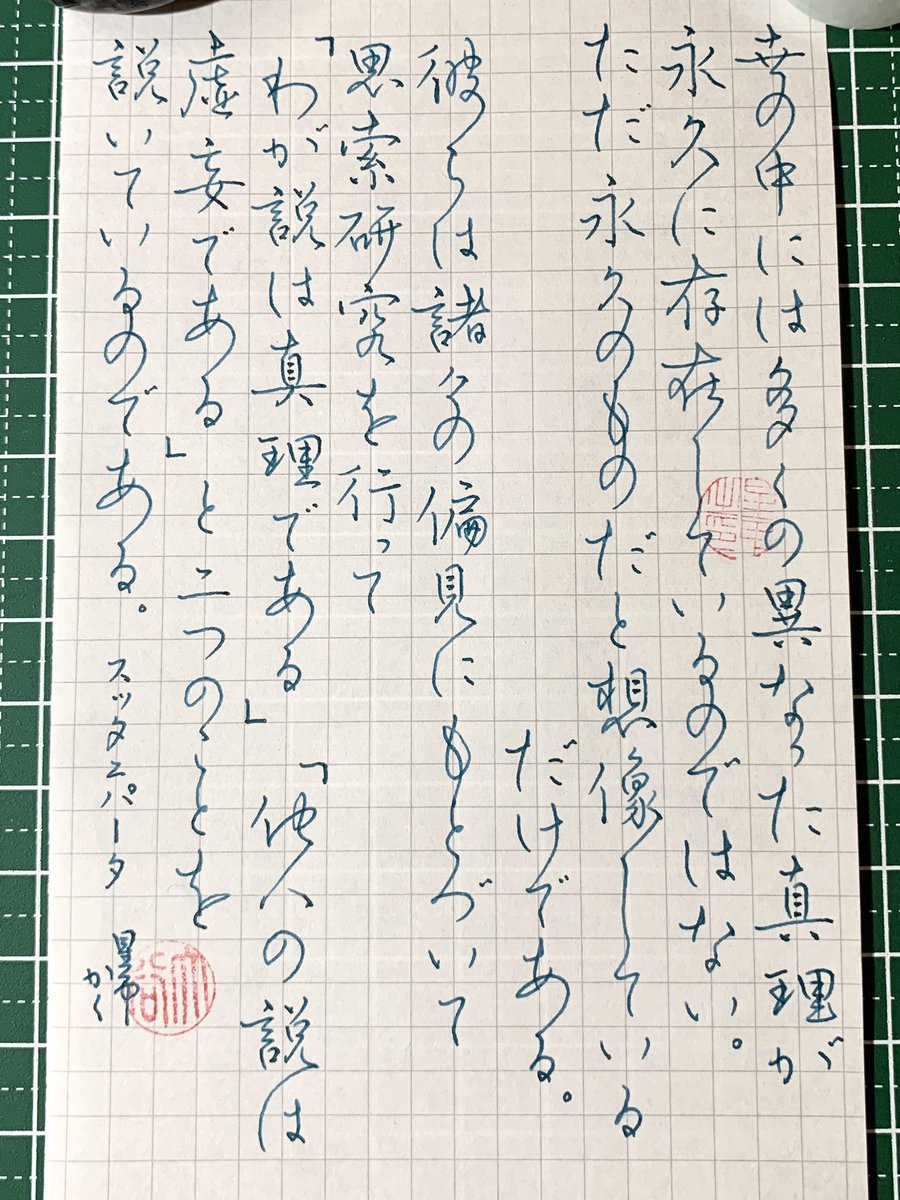 世の中には多くの異なった真理が
永久に存在しているのではない。
ただ永久のものだと想像している
だけである。
彼らは諸々の偏見にもとづいて
思索研究を行って
「わが説は真理である」「他人の説は
虚妄である」と二つのことを
説いているのである。 スッタニパータ
かく